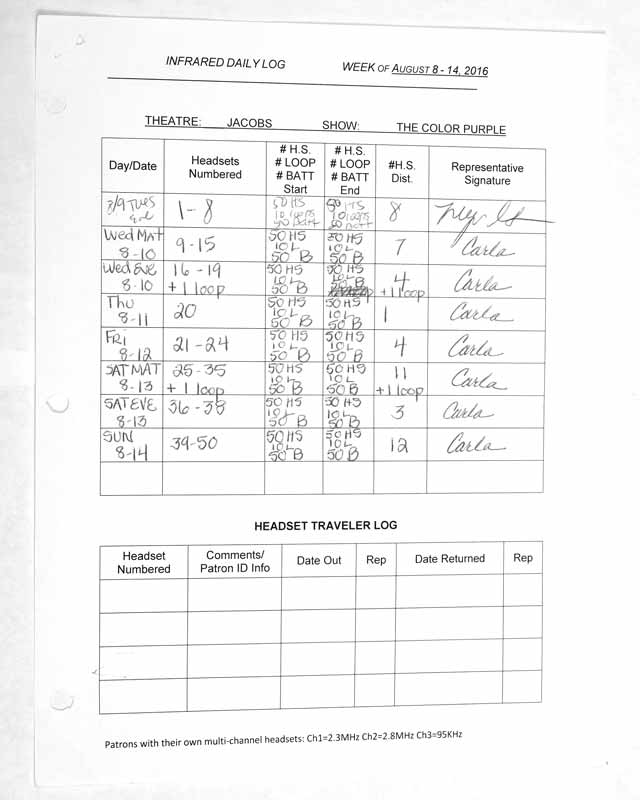 INFRARED DAILY LOG WEEK OF AUGUST 8 - 14, 2016
THEATRE: JACOBS SHOW: THE COLOR PURPLE
Day/Date Headsets Numbered # H.S. # LOOP # BATT Start # H.S. # LOOP # BATT End #H.S. Dist. Representative Signature
8/9 TUES Eve 1-8 50 HS 50 HS 8
Wed MAT 8-10 9-15 50 HS 10 L 50 B 50 HS 10 L 50 B 7 Carla
Wed Eve 8-10 16-19 +1 loop 50 HS 10 L 50 B 50 HS 10 L 50 B 4 +1 loop Carla
Thu 8-11 20 50 HS 10 L 50 B 50 HS 10 L 50 B 1 Carla
FRI 8-12 21-24 50 HS 10 L 50 B 50 HS 10 L 50 B 4 Carla
SAT MAT 8-13 25-35 +1 loop 50 HS 10 L 50 B 50 HS 10 L 50 B 11 +1 loop Carla
SAT EVE 8-13 36-38 50 HS 10 L 50 B 50 HS 10 L 50 B 3 Carla
SUN 8-14 39-50 50 HS 10 L 50 B 50 HS 10 L 50 B 12 Carla
HEADSET TRAVELER LOG
Headset Numbered Comments/ Patron ID Info Date Out Rep Date Returned Rep
Patrons with their own multi-channel headsets: Ch1=2.3MHz Ch2=2.8MHz Ch3=95KHz